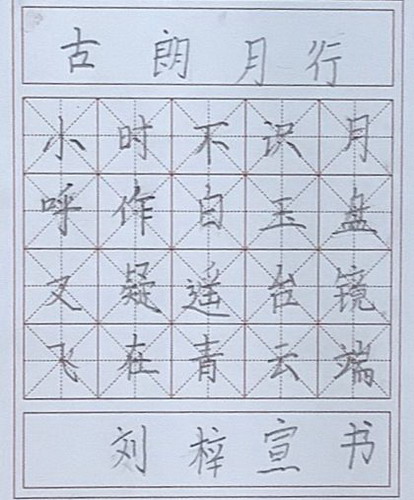 古朗月行
小时不识月
呼作白玉盘
又疑遥台镜
飞在青云端
刘梓宣书